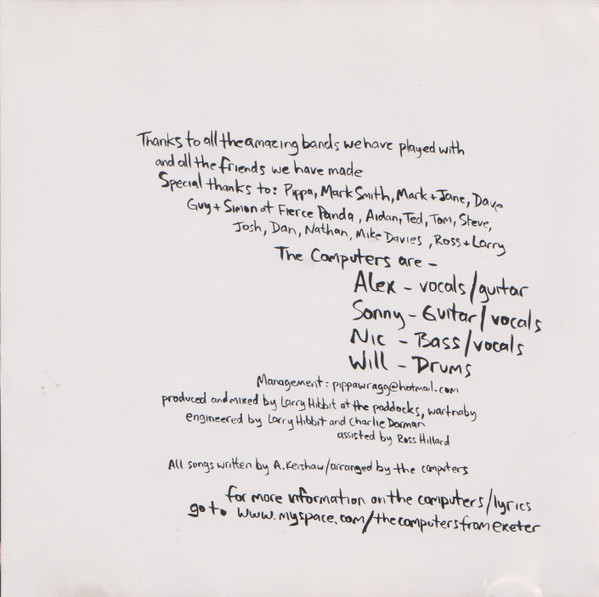 Thanks to all the amazing bands we have played with
and all the friends we have made
Special thanks to: Pippa, Mark Smith, Mark + Jane, Dave
Guy + Simon at Fierce Panda, Aidan, Ted, Tom, Steve,
Josh, Dan, Nathan, Mike Davies, Ross + Larry
The Computers are -
Alex - vocals/guitar
Sonny - Guitar/vocals
Nic - Bass/vocals
Will - Drums
Management: pippawragg@hotmail.com
produced and mixed by Larry Hibbit at the paddocks, wartnaby
engineered by Larry Hibbit and Charlie Dorman
assisted by Ross Hillard
All songs written by A. Kershaw/arranged by the computers
for more information on the computers/lyrics
go to www.myspace.com/thecomputersfromexeter